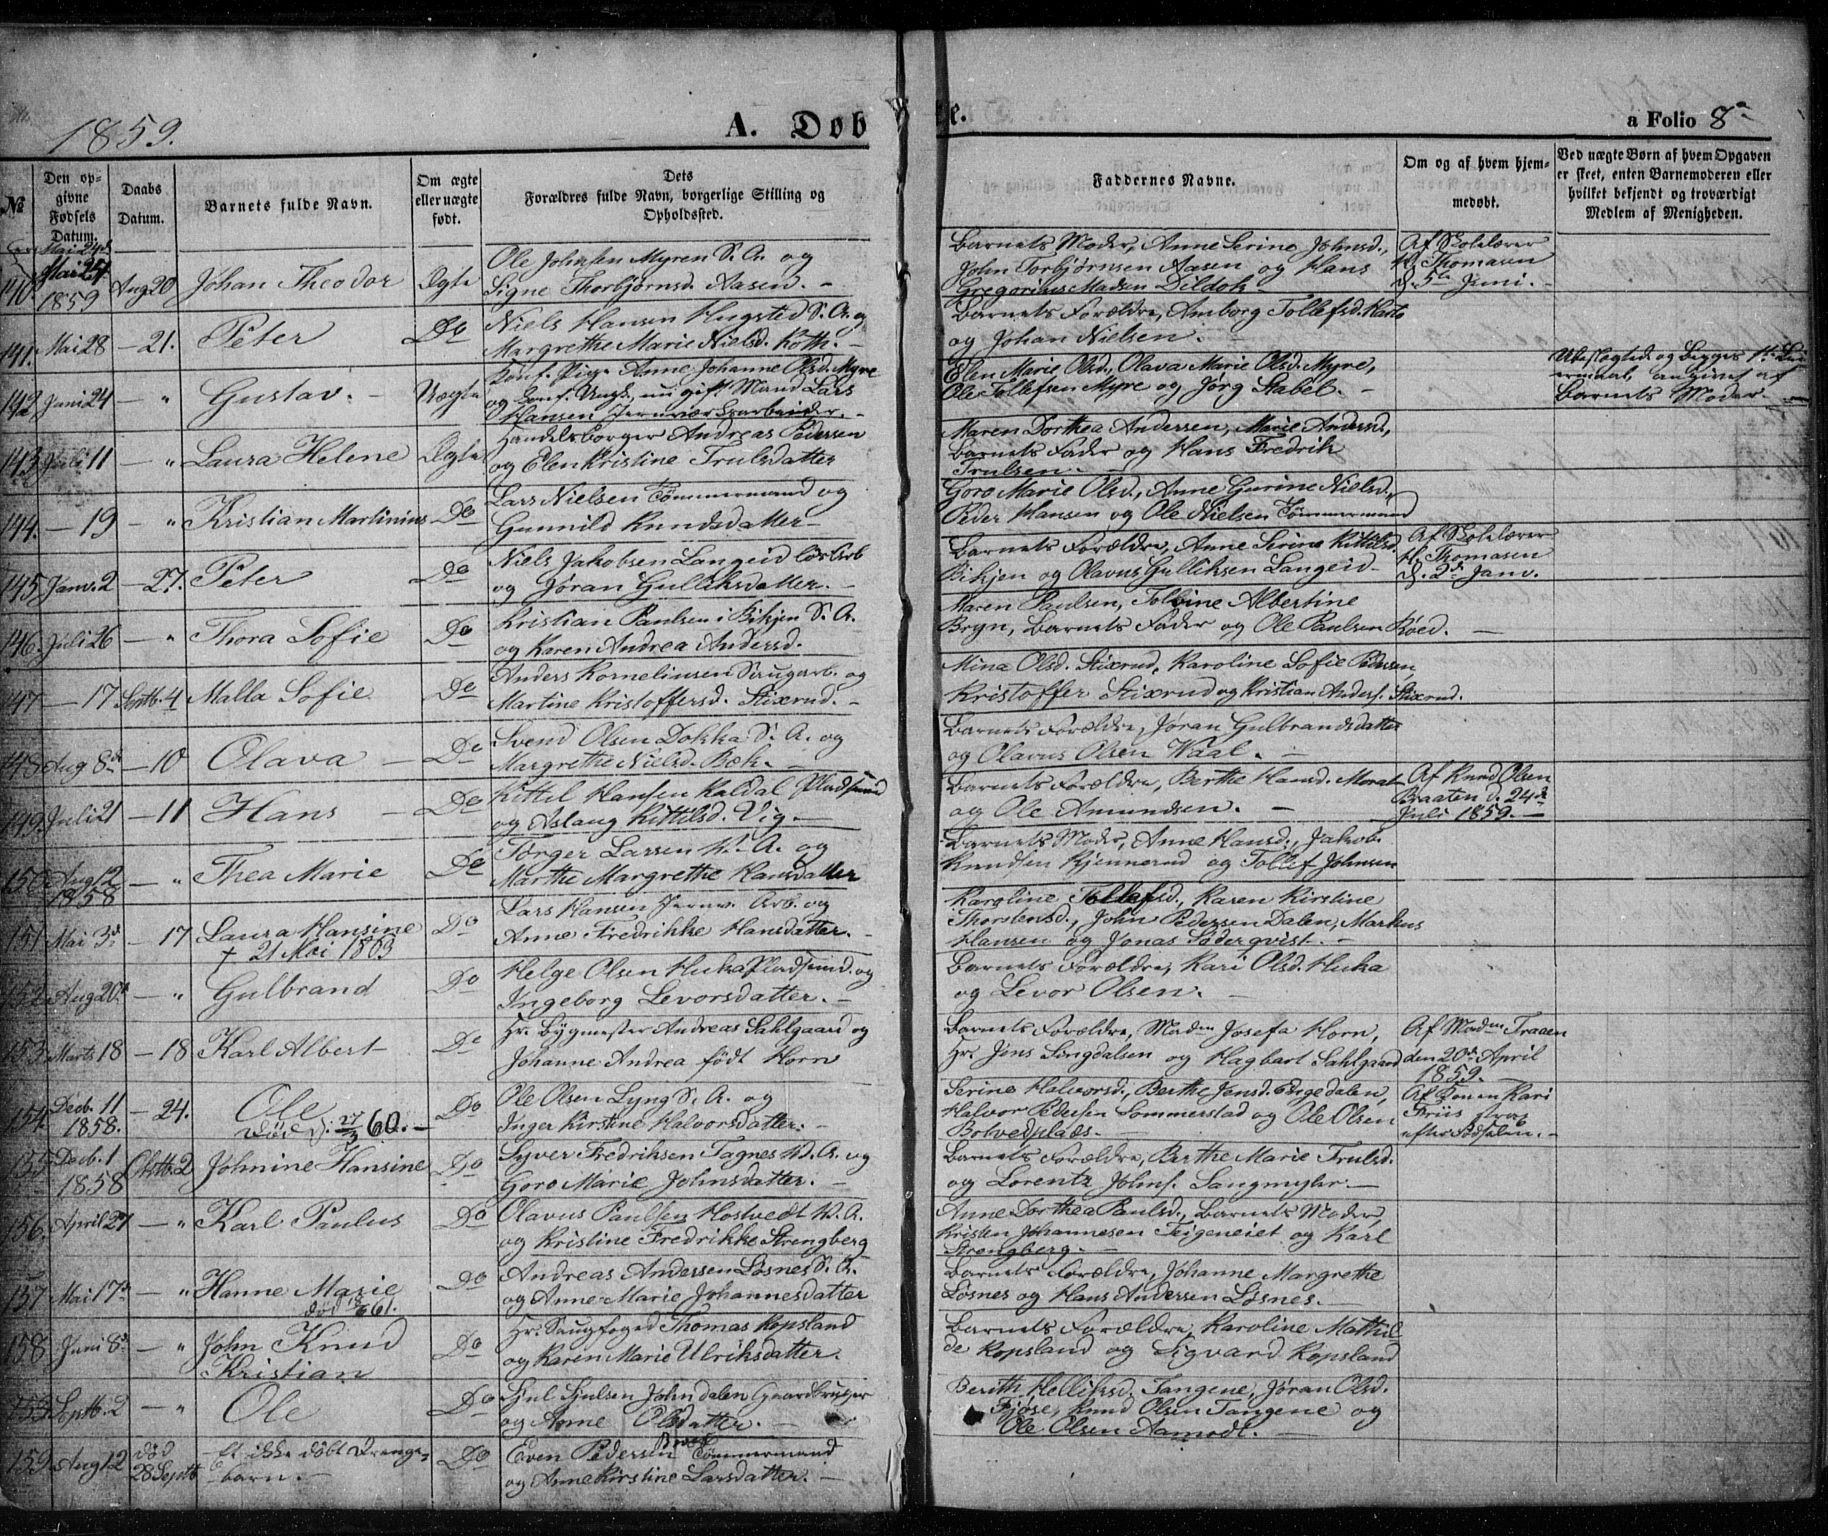 1859.
A. Døb
e.
a Folio 8a
№
Den opgivne Fødsels Datum.
Daabs Datum.
Barnets fulde Navn.
Om ægte eller uægte født.
Dets Forældres fulde Navn, borgerlige Stilling og Opholdssted.
Faddernes Navne.
Om og af hvem hjemmedøbt.
Ved uægte Børn af hvem Opgaven er skeet, enten Barnemoderen eller hvilket bekjendt og troværdigt Medlem af Menigheden.
140. Mai 24 1859 Aug 20 Johan Theodor Ægte
Ole Johnsen Myren S. A. og
Signe Thorbjørnsd. Aasen. –
Barnets Moder, Anne Serine Johnsd.,
John Torbjørnsen Aasen og Hans
Gregorius Madsen Dildok
Af Skolelærer
H. Thomasen
d. 5te Juni. –
141. Mai 28 – 21. Peter – Do
Niels Hansen Hugsted S. A. og
Margrethe Marie Nielsd. Koth. –
Barnets Forældre, Amborg Tollefsd.
og Johan Nielsen. –
142 Juni 24 – " Gustav. – Uægte
Konf. Pige Anne Johanne Olsd. Myre
og Konf. Ungk., nu gift Mand Lars
Hansen Jernværksarbeider. –
Elen Marie Olsd., Olava Marie Olsd. Myre,
Ole Tollefsen Myre og Jørg Stabel. –
angivet af
Barnets Moder. –
143 Juli 11 – " Laura Helene Ægte
Handelsborger Andreas Pedersen
og Elen Kristine Trulsdatter
Maren Dorthea Andersen, Marie Andersd.,
Barnets Fader og Hans Fredrik
Trulsen. –
144. – 19 – " Kristian Martinius Do
Lars Nielsen Tømmermand og
Gunnild Knudsdatter –
Goro Marie Olsd., Anne Gurine Nielsd.,
Peder Hansen og Ole Nielsen Tømmermand
145 Janv. 2 – 27. Peter Do
Niels Jakobsen Langeid løs Arb
og Jøran Gulliksdatter. –
Barnets Forældre, Anne Serine Kittilsd.
Bikjen og Olavus Gulliksen Langeid –
Af Skolelærer
H. Thomasen
d. 2d Janv.
146. Juli 26 – " Thora Sofie Do
Kristian Paulsen i Bikjen S. A.
og Karen Andrea Andersd.
Maren Paulsen, Tolline Albertine
Bryn, Barnets Fader og Ole Paulsen Røed. –
147 – 17 Septb. 4 Malla Sofie Do
Anders Kornelinsen Brugarb. og
Martine Kristoffersd. Stixrud. –
Mina Olsd. Stixrud, Karoline Sofie Pedersen,
Kristoffer Stixrud og Kristian Anders. Stixrud.
148 Aug 8d – 10 Olava – Do
Svend Olsen Dokka S. A. og
Margrethe Nielsd. Bek. –
Barnets Forældre, Jøran Gulbrandsdatter
og Olavus Olsen Waal. –
149 Juli 21 – 11 Hans – Do
Kittil Hansen Kaldal Pladsmand
og Aslaug Kittilsd. Vig. –
Barnets Forældre, Berthe Hansd. Morat
og Ole Amundsen. –
Af Knud Olsen
Braaten d. 24d
Juli 1859. –
150 Aug 12 – " Thea Marie Do
Torger Larsen K. A. og
Marthe Margrethe Hansdatter
Barnets Moder, Anne Hansd., Jakob
Knudsen Hjennerud og Tollef Johnsen
151 1858 Mai 3d – 17 Laura Hansine Do
† 21 Mai 1863
Lars Hansen Jernv. Arb. og
Anne Fredrikke Hansdatter. –
Karoline Tollefsd., Karen Kirstine
Thorstensd., John Pedersen Dalen, Markus
Hansen og Jonas Söderqvist. –
152 Aug 20d – " Gulbrand Do
Helge Olsen Huka Pladsmd. og
Ingeborg Levorsdatter. –
Barnets Forældre, Kari Olsd. Huka
og Levor Olsen. –
153 Marts 18 – 18 Karl Albert Do
Hr. Bygmester Andreas Sahlgaard og
Johanne Andrea født Horn
Barnets Forældre, Madmn Josefa Horn,
Hr. Jens Lingdalsen og Hagbart Sahlgaard
Af Madmn Traaen
den 20d April
1859.
154. Decb. 11 1858. – 24. Ole Do
Død d. 27/3 60. –
Ole Olsen Lyng S. A. og
Inger Kirstine Halvorsdatter. –
Serine Halvorsd., Berthe Jensd. Engedalen,
Halvor Pedersen Sommerstad og Ole Olsen
Botvedplads –
Af Konen Kari
Friis strax
efter Fødselen. –
155 Decb. 1 1858 Oktb. 2 Johnine Hansine Do
Syver Fredriksen Tagnes K. A. og
Goro Marie Johnsdatter. –
Barnets Forældre, Berthe Marie Trulsd.
og Lorentz Johns. Sangmyhr. –
156. April 27 – " Karl Paulus Do
Olavus Paulsen Hostvedt K. A.
og Kristine Fredrikke Strengberg
Anne Dorthea Paulsd., Barnets Moder,
Kristen Johannesen Teigeneiet og Karl
Strengberg. –
157 Mai 17d – " Hanne Marie Do
død 61.
Andreas Andersen Løsnes S. A.
og Anne Marie Johannesdatter
Barnets Forældre, Johanne Margrethe
Løsnes og Hans Andersen Løsnes. –
158 Juni 8d – " John Knud
Kristian Do
Hr. Saugfoged Thomas Kopsland
og Karen Marie Ulriksdatter.
Barnets Forældre, Karoline Mathil-
de Kopsland og Sigvard Kopsland
Septb. 2 – " Ole Do
Gjul Gjulsen Johndalen Gaardbruger
og Anne Olsdatter. –
Berith Helliksd. Tangene, Jøran Olsd.
Fjøse, Knud Olsen Tangene og
Ole Olsen Aamodt. –
159 Aug 12 død 28 Septb – Et ikke døbt Drenge-
barn. – Do
Even Pedersen Tømmermand
og Anne Kirstine Larsdatter. –